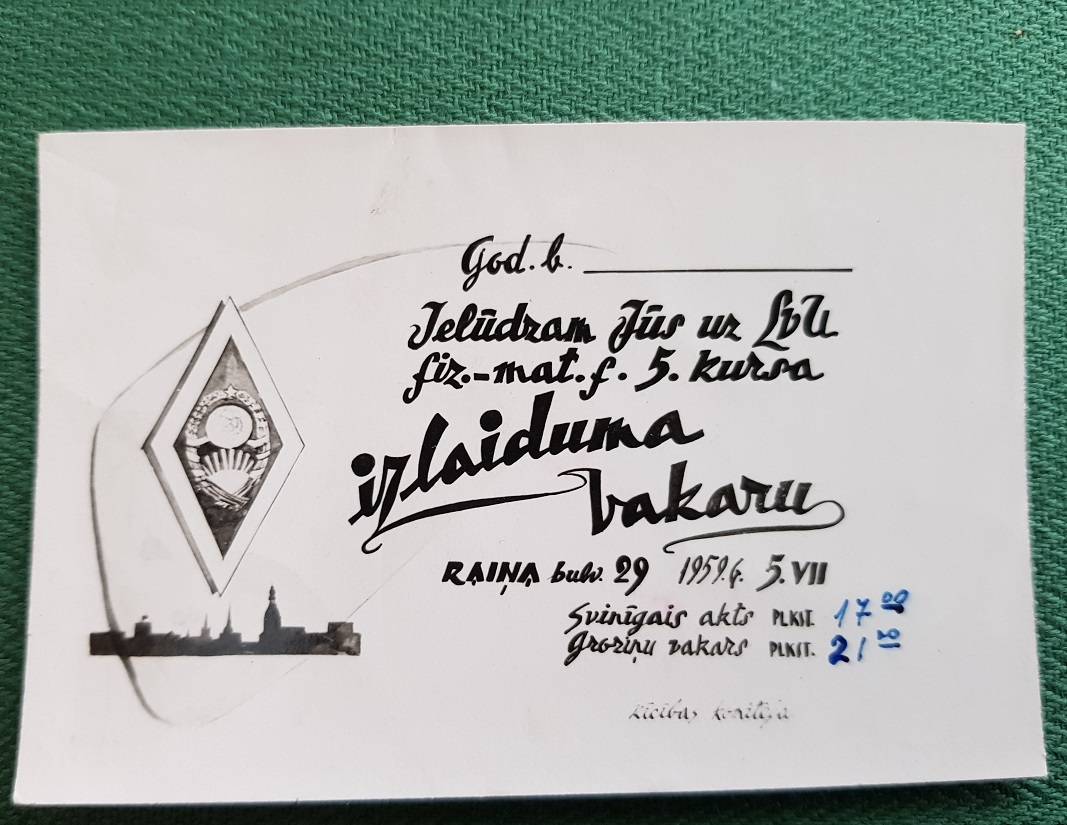 God. b. ____________
Ielūdzam Jūs uz LVU
fiz.-mat. f. 5. kursa
izlaiduma
vakaru
RAIŅA bulv. 29 1959.g. 5. VII
Svinīgais akts PLKST. 17 00
Groziņu vakars PLKST. 21
Rīcības komiteja